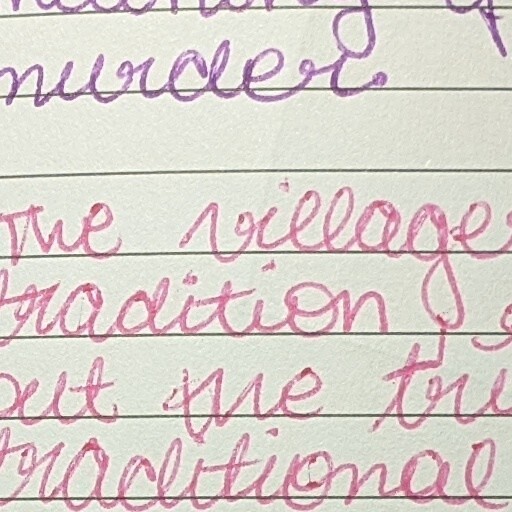 murder.
The village
tradition
but the
traditional